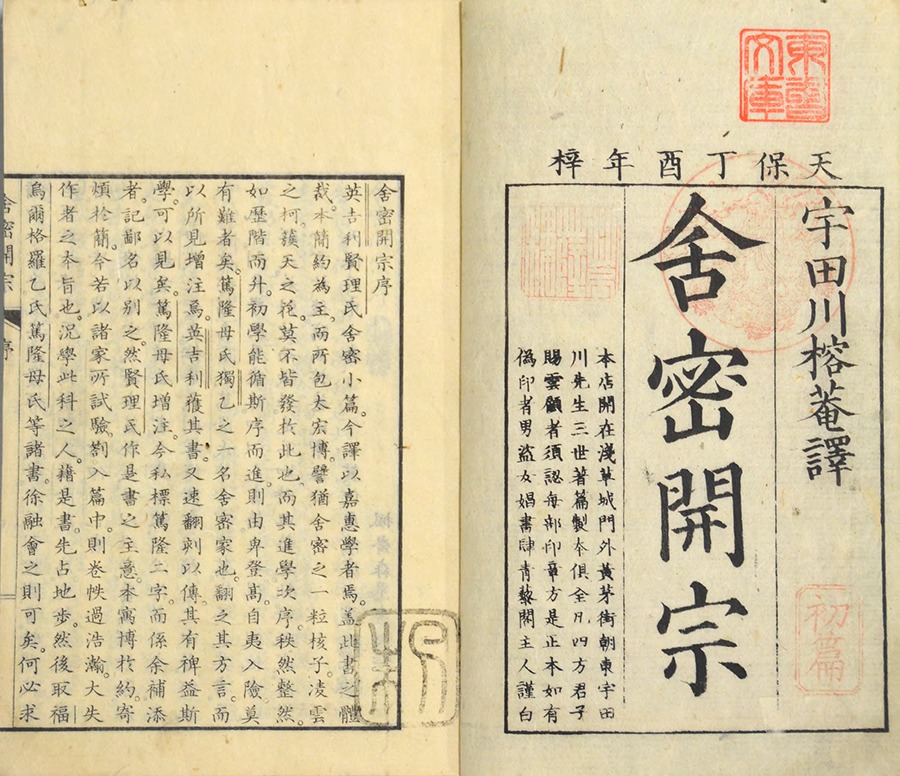 天保丁酉年梓
宇田川榕菴譯
初篇
舍密開宗
本店開在淺草城門外黃茅街朝東宇田
川先生三世著篇製本俱全凡四方君子
賜雲顧者須認每部印章方是正本如有
偽印者男盜女娼書肆青藜閣主人謹白
舍密開宗序
英吉利賢理氏舍密小篇。今譯以嘉惠學者焉。盖此書之體
裁。本簡約為主。而所包太宏博。譬猶舍密之一粒核子。凌雲
之柯。蔟天之葩。莫不皆發於此也。而其進學次序。秩然整然。
如歷階而升。初學能循斯序而進。則由卑登高。自夷入險。莫
有難者矣。篤隆母氏獨乙之一名舍密家也。翻之其方言。而
以所見增注焉。英吉利獲其書。又速翻刺以傳。其有裨益斯
學。可以見矣。篤隆母氏增注。今私標篤隆二字。而係余補添
者。記鄙名以別之。然賢理氏作是書之主意。本寓博於約。寄
煩於簡。今若以諸家所試驗劄入篇中。則卷帙過浩瀚。大失
作者之本旨也。況學此科之人。藉是書。先占地步。然後取福
烏爾格羅乙氏篤隆母氏等諸書。徐融會之則可矣。何必求
舍密開宗 序